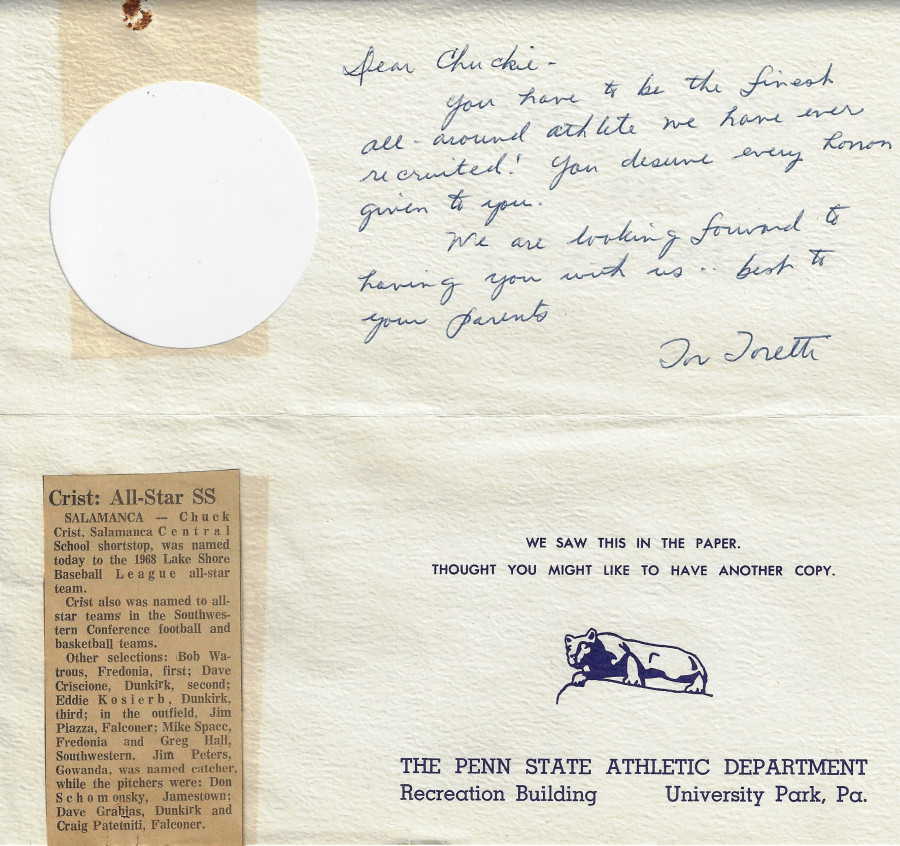 Dear Chuckie -
You have to be the finest
all-around athlete we have ever
recruited! You deserve every honor
given to you.
We are looking forward to
having you with us .. best to
your parents
Tor Toretti
Crist: All-Star SS
SALAMANCA — Chuck
Crist, Salamanca Central
School shortstop, was named
today to the 1968 Lake Shore
Baseball League all-star
team.
Crist also was named to all-
star teams in the Southwes-
tern Conference football and
basketball teams.
Other selections: Bob Wa-
trous, Fredonia, first; Dave
Criscione, Dunkirk, second;
Eddie Kosierb, Dunkirk,
third; in the outfield, Jim
Piazza, Falconer; Mike Spacc,
Fredonia and Greg Hall,
Southwestern. Jim Peters,
Gowanda, was named catcher,
while the pitchers were: Don
Schomonsky, Jamestown;
Dave Grabias, Dunkirk and
Craig Patetniti, Falconer.
WE SAW THIS IN THE PAPER.
THOUGHT YOU MIGHT LIKE TO HAVE ANOTHER COPY.
THE PENN STATE ATHLETIC DEPARTMENT
Recreation Building University Park, Pa.